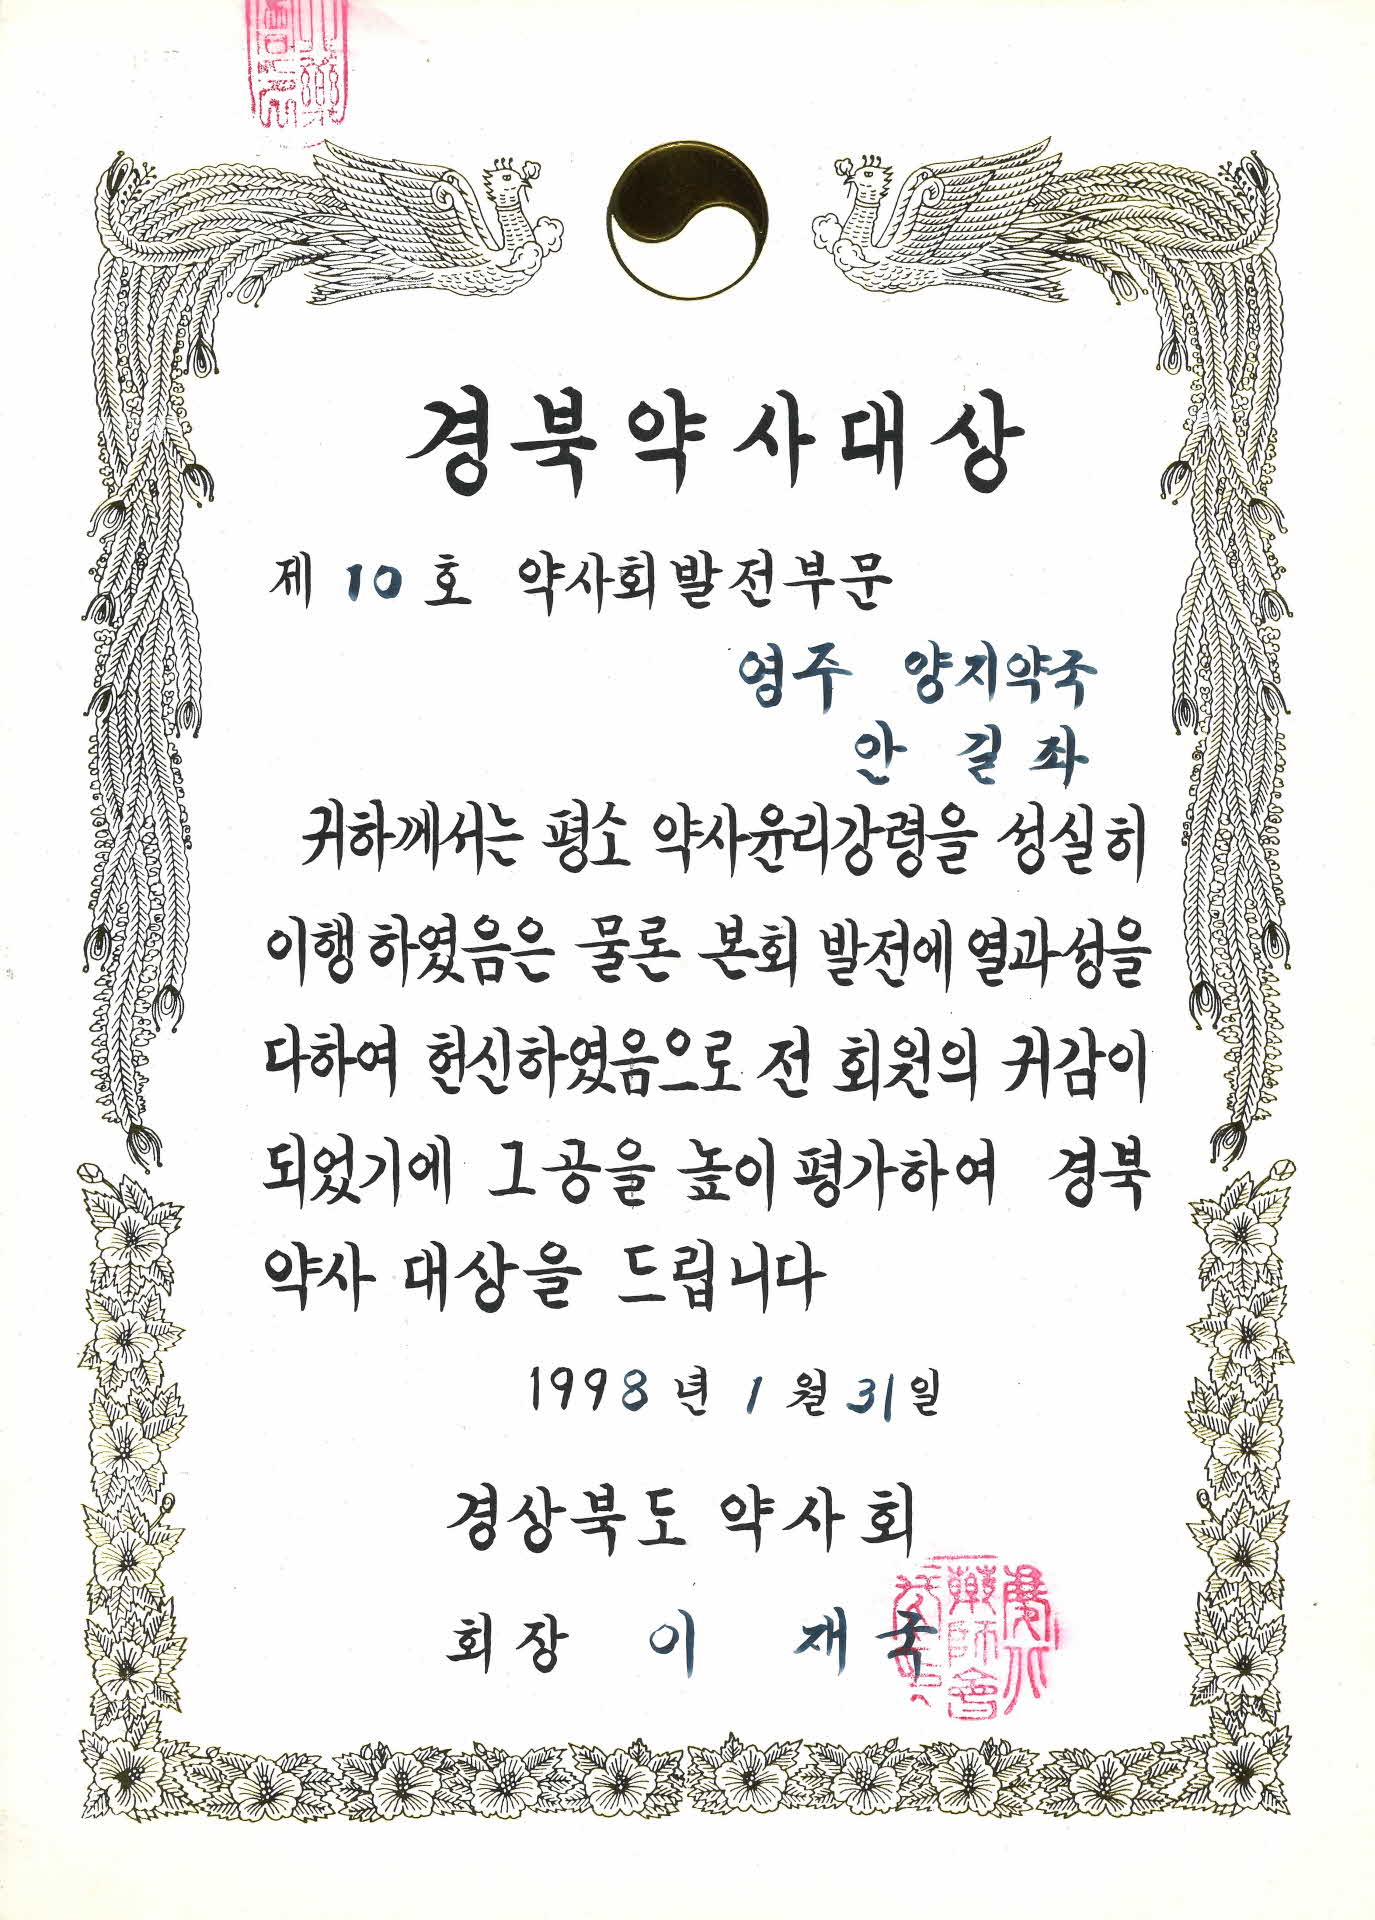 경북약사대상
제 10 호 약사회발전부문
영주 양지약국
안 길좌
귀하께서는 평소 약사윤리강령을 성실히
이행하였음은 물론 본회 발전에 열과성을
다하여 헌신하였음으로 전 회원의 귀감이
되었기에 그공을 높이평가하여 경북
약사 대상을 드립니다
1998년 1월 31일
경상북도 약사회
회장 이 재국